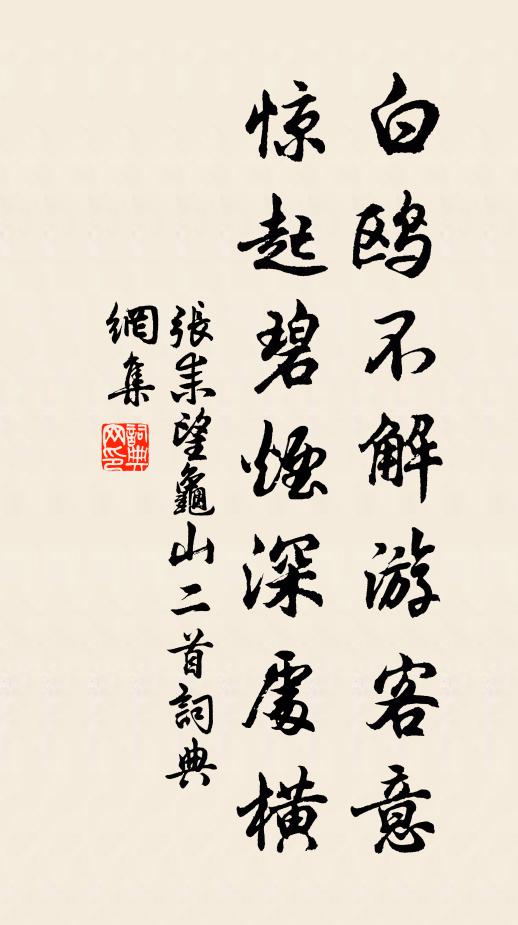 白鸥不解游客意
惊起碧煙深處横
張耒望龜山二首詞典
網集
詞典
网印